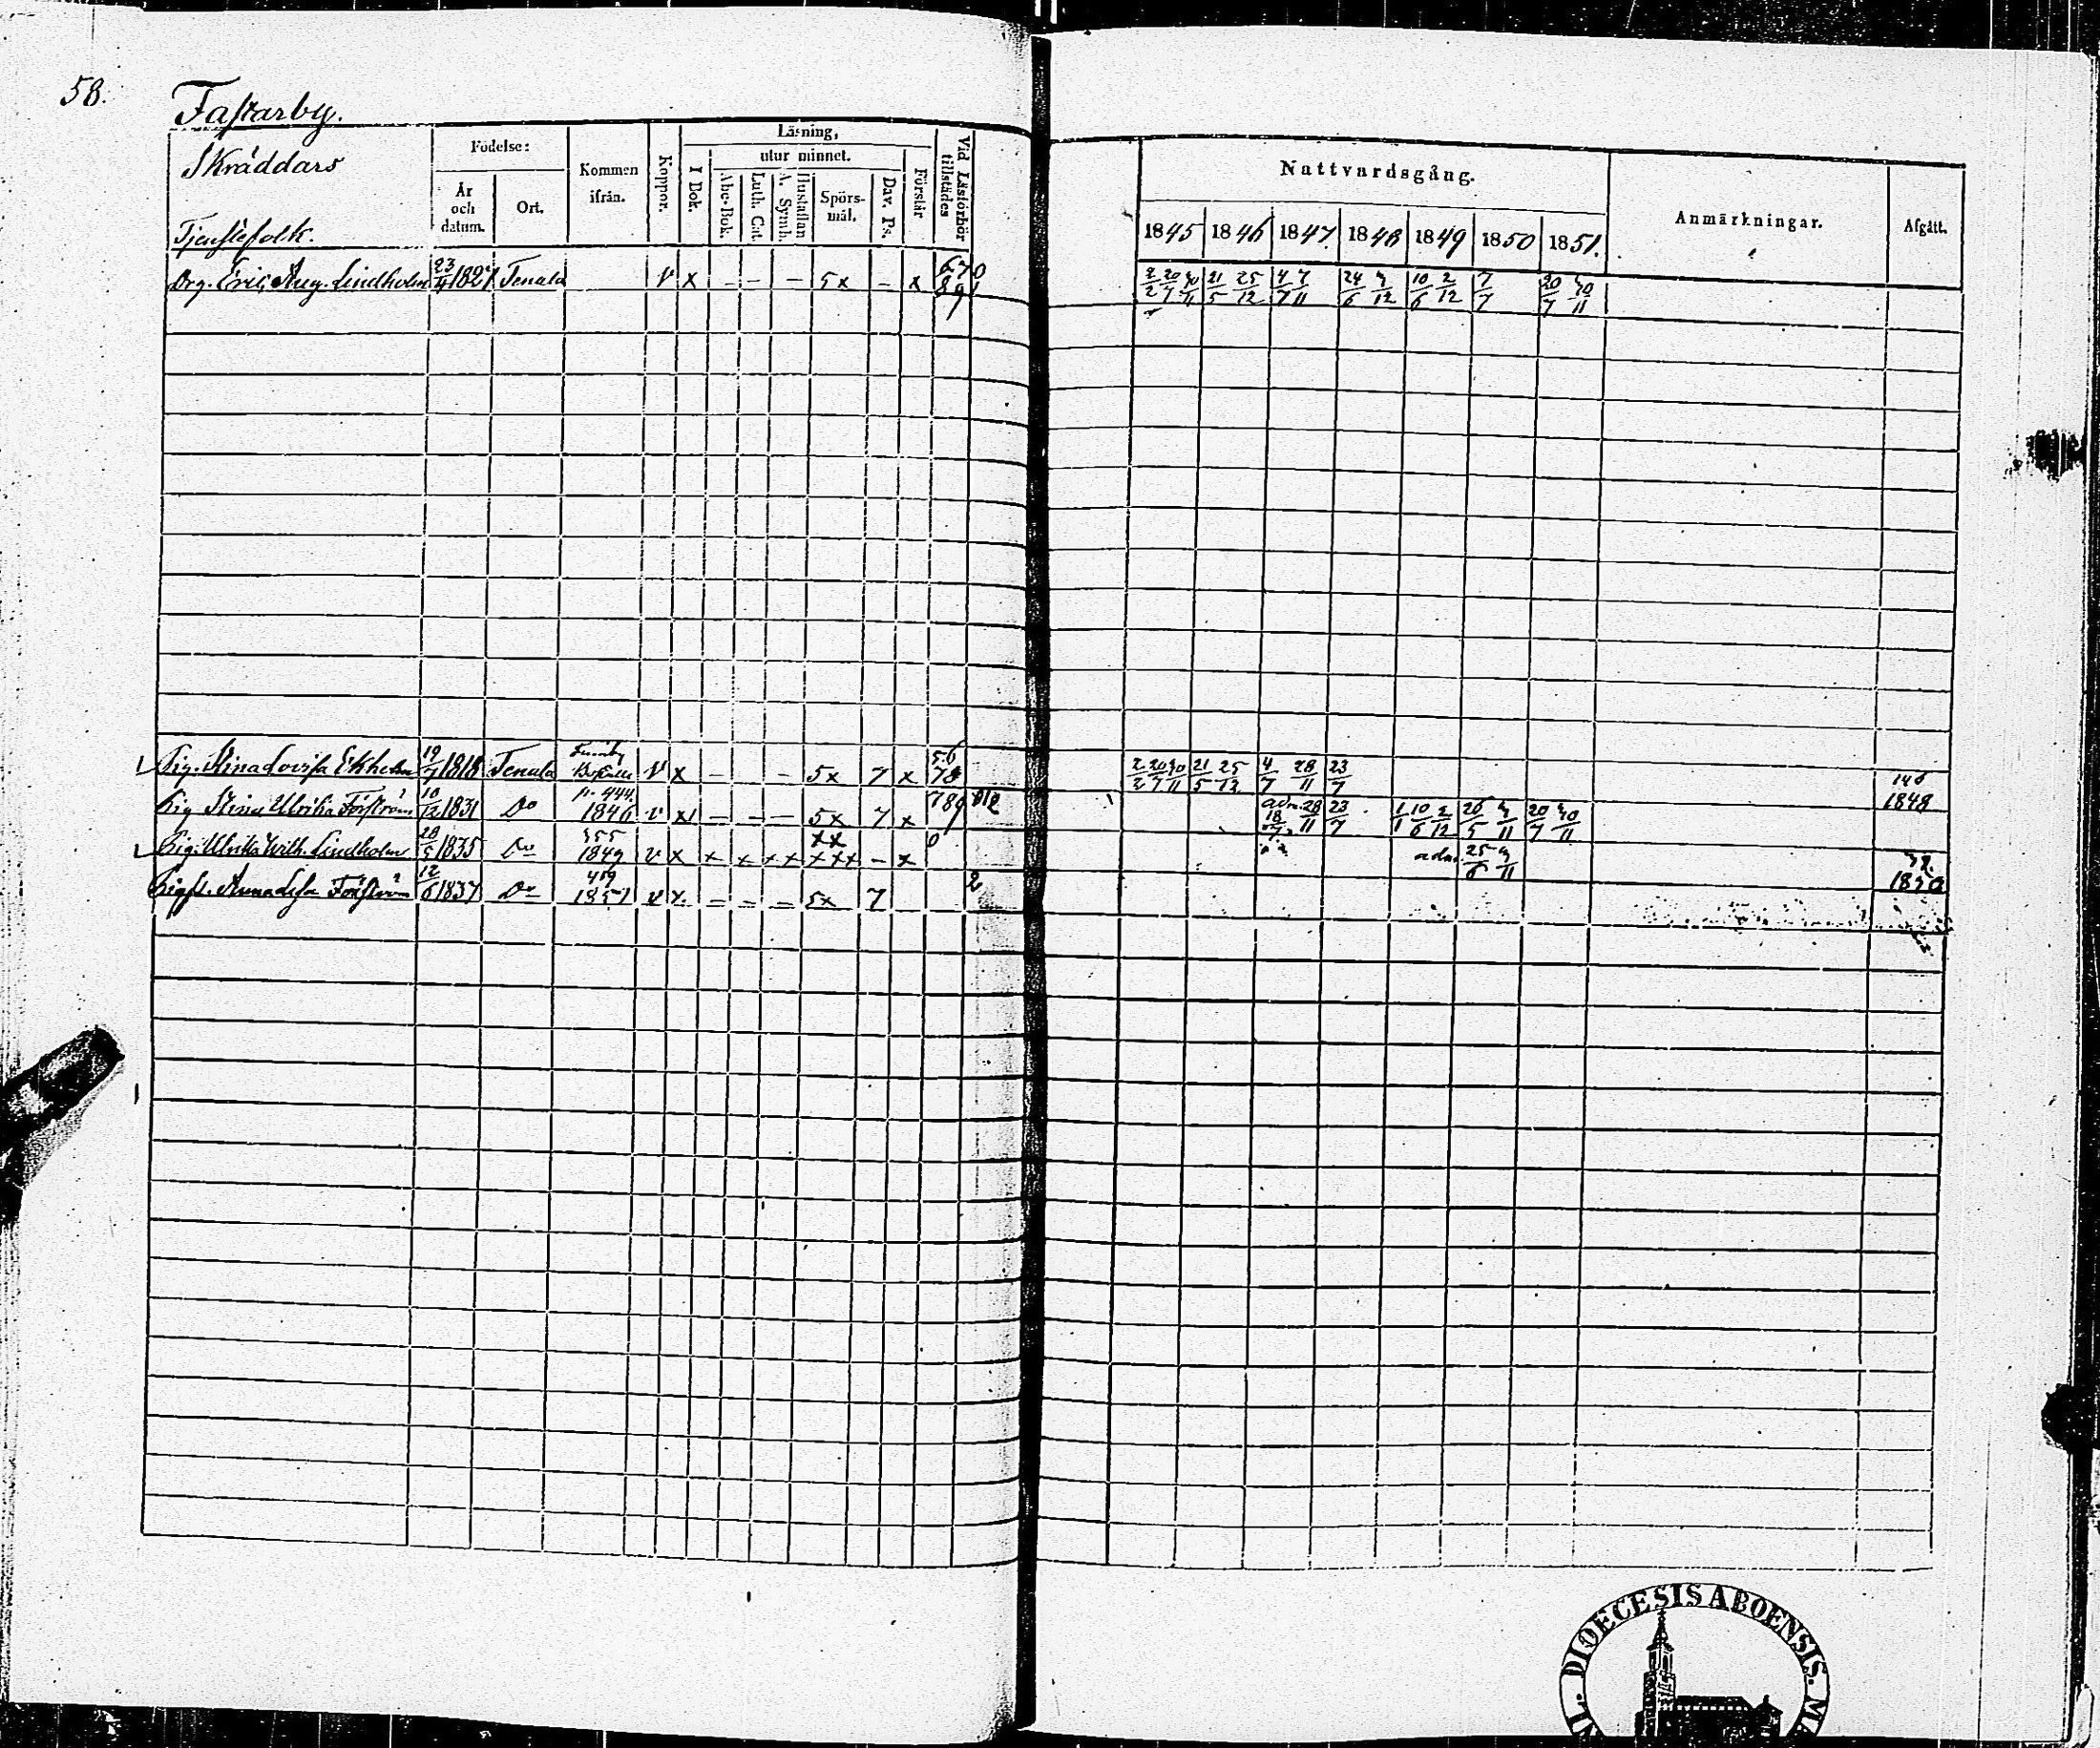 58.
Fastarby.
Skräddars
Tjenstefolk.
Födelse:
År och datum.
Ort.
Kommen ifrån.
Koppor.
Läsning,
I Bok.
utur minnet.
Abc-Bok.
Luth. Cat.
A. Symb.
Hustaflan
Spörsmål.
Dav. Ps.
Förstår
Vid Läsförhör tillstädes
Nattvardsgång.
1845 1846 1847 1848 1849 1850 1851.
Anmärkningar.
Afgått.
Drg. Eric Aug. Lindholm 23/4 1827 Tenala v x – – – 5x – x 67 0 89 1 2/2 20/7 30/11 21/5 25/12 4/7 7/11 24/6 3/12 10/6 2/12 7/7 20/7 30/11
Pig. Stina Lovisa Ekholm 19/7 1818 Tenala v x – – 5x 7 x 56 78 2/2 20/7 30/11 21/5 25/12 4/7 28/11 23/7 146 1848
Pig Stina Ulrika Förström 10/12 1831 Do p. 444. 1846 v x – – – 5x 7 x 789 012 adm. 18/7 28/11 23/7 1/1 10/6 2/12 26/5 3/11 20/7 30/11
Pig. Ulrika Wilh. Lindholm 28/5 1835 Do 355 1849 v x x x x x xx xxx – x 0 adm. 25/6 3/11 32 1850
Pigfl. Anna Lisa Förström 12/6 1837 Do 419 1851 v x – – – 5x 7 2
DIOECESIS ABOENSIS.